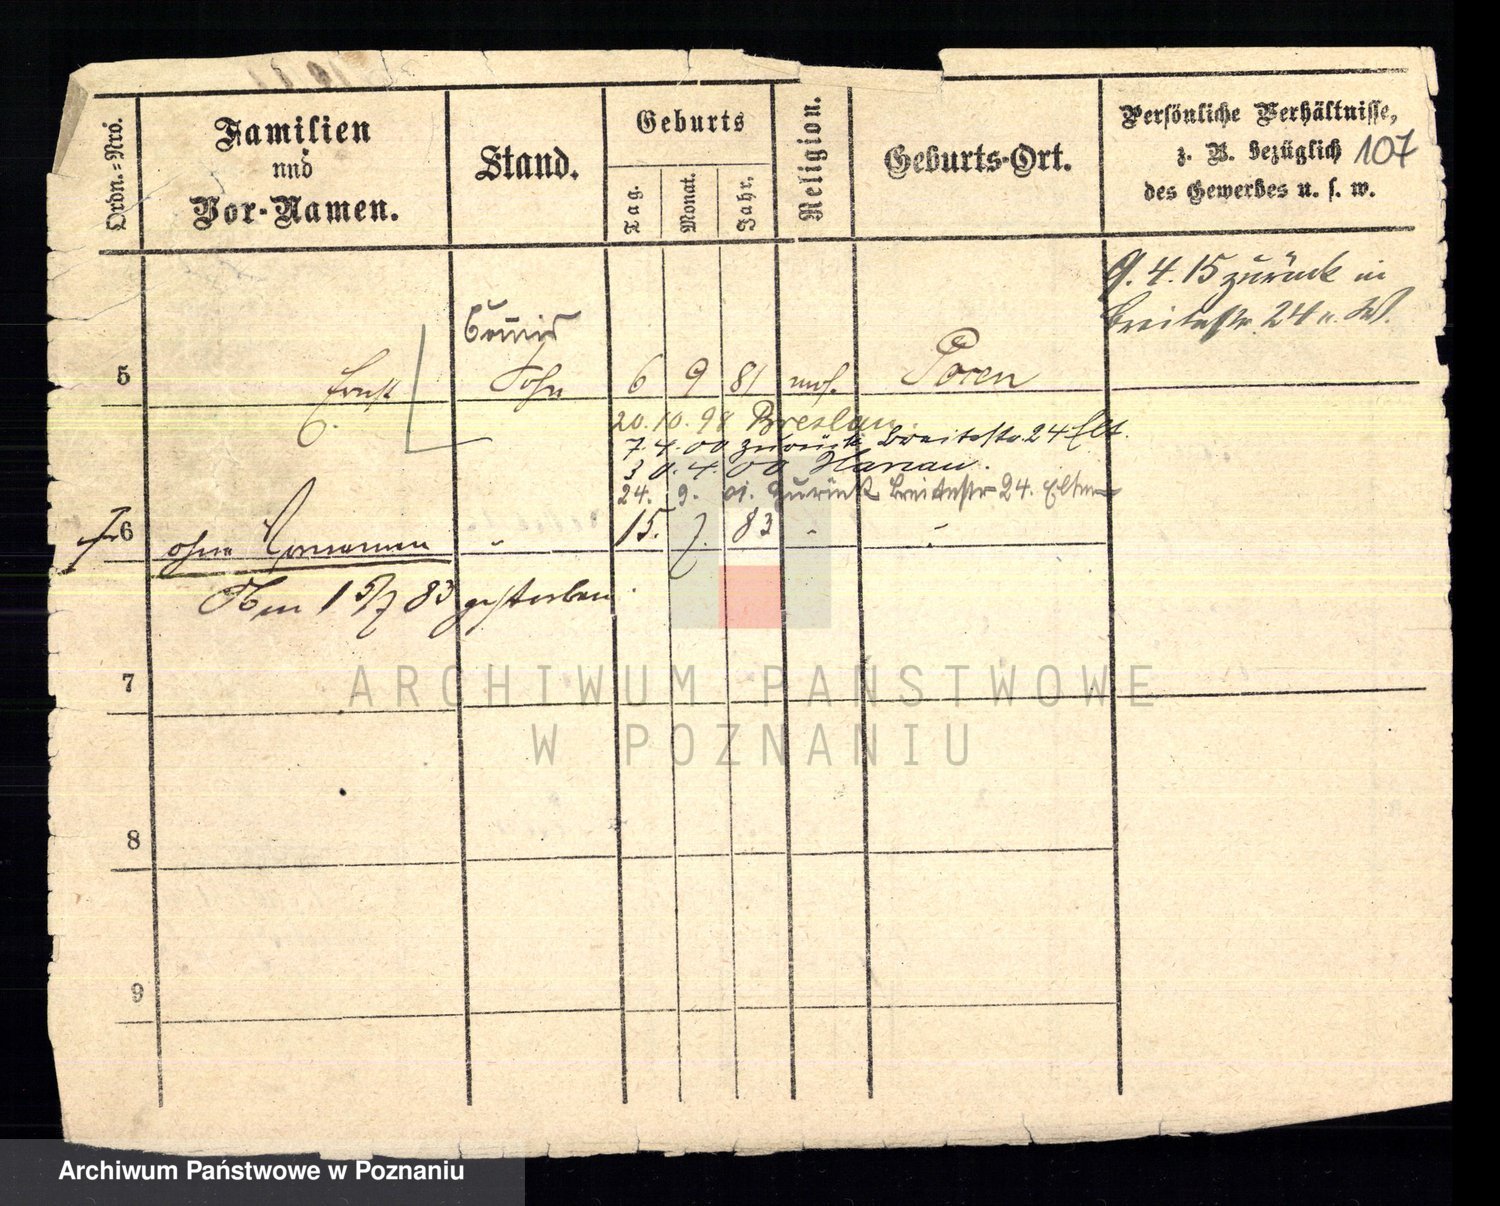 Ordn.-Nro.
Familien
und
Vor-Namen.
Stand.
Geburts
Tag.
Monat.
Jahr.
Religion.
Geburts-Ort.
Persönliche Verhältnisse,
z. B. bezüglich
des Gewerbes u. s. w.
107
9. 4. 15 zurück in
Breitestr. 24 u. W.
Commis
5 Ernst Sohn 6 9 81 mos. Posen
20. 10. 98 Breslau.
7. 4. 00 zurück Breitestr. 24 Elt.
30. 4. 00 Hanau.
24. 9. 01. zurück Breitestr 24. Eltern
6 ohne Vornamen " 15. 7. 83 " "
Am 15/7 83 gestorben.
7
ARCHIWUM PAŃSTWOWE
W POZNANIU
8
9
Archiwum Państwowe w Poznaniu